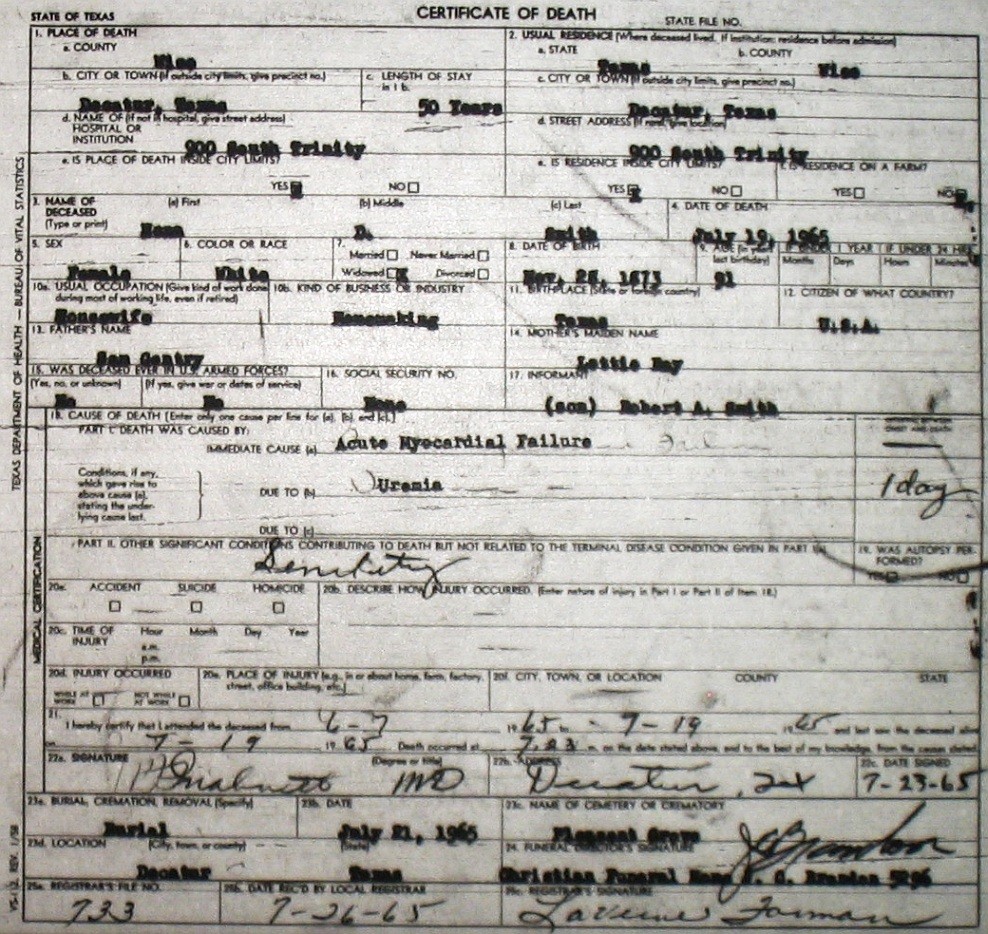 STATE OF TEXAS
CERTIFICATE OF DEATH
STATE FILE NO.
TEXAS DEPARTMENT OF HEALTH — BUREAU OF VITAL STATISTICS
1. PLACE OF DEATH
a. COUNTY
Wise
2. USUAL RESIDENCE (Where deceased lived. If institution: residence before admission)
a. STATE
Texas
b. COUNTY
Wise
b. CITY OR TOWN (If outside city limits, give precinct no.)
Decatur, Texas
c. LENGTH OF STAY
in 1 b.
50 Years
c. CITY OR TOWN (If outside city limits, give precinct no.)
Decatur, Texas
d. NAME OF (If not in hospital, give street address)
HOSPITAL OR
INSTITUTION
900 South Trinity
d. STREET ADDRESS (If rural, give location)
900 South Trinity
e. IS PLACE OF DEATH INSIDE CITY LIMITS?
YES X NO
e. IS RESIDENCE INSIDE CITY LIMITS?
YES X NO
f. IS RESIDENCE ON A FARM?
YES NO
3. NAME OF
DECEASED
(Type or print)
(a) First
(b) Middle
D.
(c) Last
Smith
4. DATE OF DEATH
July 19, 1965
5. SEX
Female
6. COLOR OR RACE
White
7.
Married Never Married
Widowed X Divorced
8. DATE OF BIRTH
Nov. 28, 1873
9. AGE (In years
last birthday)
91
IF UNDER 1 YEAR
Months Days
IF UNDER 24 HRS.
Hours Minutes
10a. USUAL OCCUPATION (Give kind of work done
during most of working life, even if retired)
Housewife
10b. KIND OF BUSINESS OR INDUSTRY
Homemaking
11. BIRTHPLACE (State or foreign country)
Texas
12. CITIZEN OF WHAT COUNTRY?
U.S.A.
13. FATHER'S NAME
Sam Gentry
14. MOTHER'S MAIDEN NAME
Lettie Day
15. WAS DECEASED EVER IN U.S. ARMED FORCES?
(Yes, no, or unknown)
No
(If yes, give war or dates of service)
No
16. SOCIAL SECURITY NO.
None
17. INFORMANT
(son) Robert A. Smith
MEDICAL CERTIFICATION
18. CAUSE OF DEATH [Enter only one cause per line for (a), (b), and (c).]
PART I. DEATH WAS CAUSED BY:
IMMEDIATE CAUSE (a) Acute Myocardial Failure
ONSET AND DEATH
Conditions, if any,
which gave rise to
above cause (a),
stating the under-
lying cause last.
DUE TO (b) Uremia
1 day
DUE TO (c)
PART II. OTHER SIGNIFICANT CONDITIONS CONTRIBUTING TO DEATH BUT NOT RELATED TO THE TERMINAL DISEASE CONDITION GIVEN IN PART I(a)
19. WAS AUTOPSY PER-
FORMED?
YES NO
20a. ACCIDENT SUICIDE HOMICIDE
20b. DESCRIBE HOW INJURY OCCURRED. (Enter nature of injury in Part I or Part II of Item 18.)
20c. TIME OF
INJURY
Hour Month Day Year
a.m.
p.m.
20d. INJURY OCCURRED
WHILE AT
WORK
NOT WHILE
AT WORK
20e. PLACE OF INJURY (e.g., in or about home, farm, factory,
street, office building, etc.)
20f. CITY, TOWN, OR LOCATION
COUNTY
STATE
21.
I hereby certify that I attended the deceased from 6-7 1965 to 7-19 1965 and last saw the deceased alive
on 7-19 1965 Death occurred at 7:23 m. on the date stated above, and to the best of my knowledge, from the causes stated.
22a. SIGNATURE
(Degree or title)
MD
22b. ADDRESS
Decatur, Tex
22c. DATE SIGNED
7-23-65
23a. BURIAL, CREMATION, REMOVAL (Specify)
Burial
23b. DATE
July 21, 1965
23c. NAME OF CEMETERY OR CREMATORY
Pleasant Grove
23d. LOCATION
(City, town, or county)
(State)
Decatur Texas
24. FUNERAL DIRECTOR'S SIGNATURE
Christian Funeral Home
25a. REGISTRAR'S FILE NO.
733
25b. DATE REC'D BY LOCAL REGISTRAR
7-26-65
25c. REGISTRAR'S SIGNATURE
LaVerne Forman
VS-112 REV. 1/58